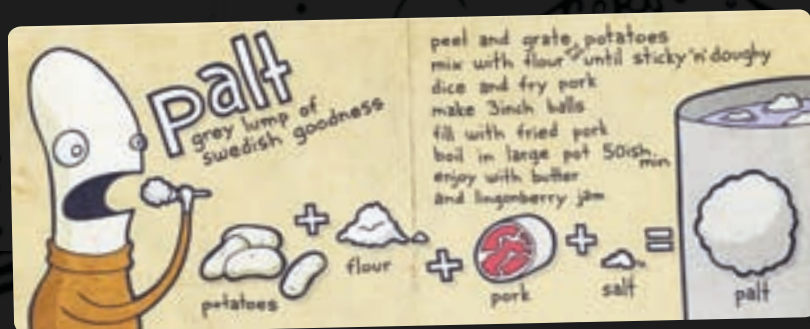 palt
grey lump of
swedish goodness
peel and grate potatoes
mix with flour until sticky 'n' doughy
dice and fry pork
make 3inch balls
fill with fried pork
boil in large pot 50ish min
enjoy with butter
and lingonberry jam
potatoes
flour
pork
salt
palt